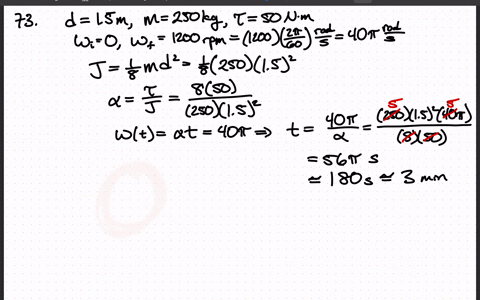 73. d = 1.5m, m = 250 kg, τ = 50 N·m
ωi = 0, ωf = 1200 rpm = (1200)(2π/60) rad/s = 40π rad/s
J = 1/8 md² = 1/8 (250)(1.5)²
α = τ/J = 8(50)/(250)(1.5)²
ω(t) = αt = 40π ⇒ t = 40π/α = (250)(1.5)²(40π)/(8)(50)
5 5
= 56π s
≃ 180 s ≃ 3 min